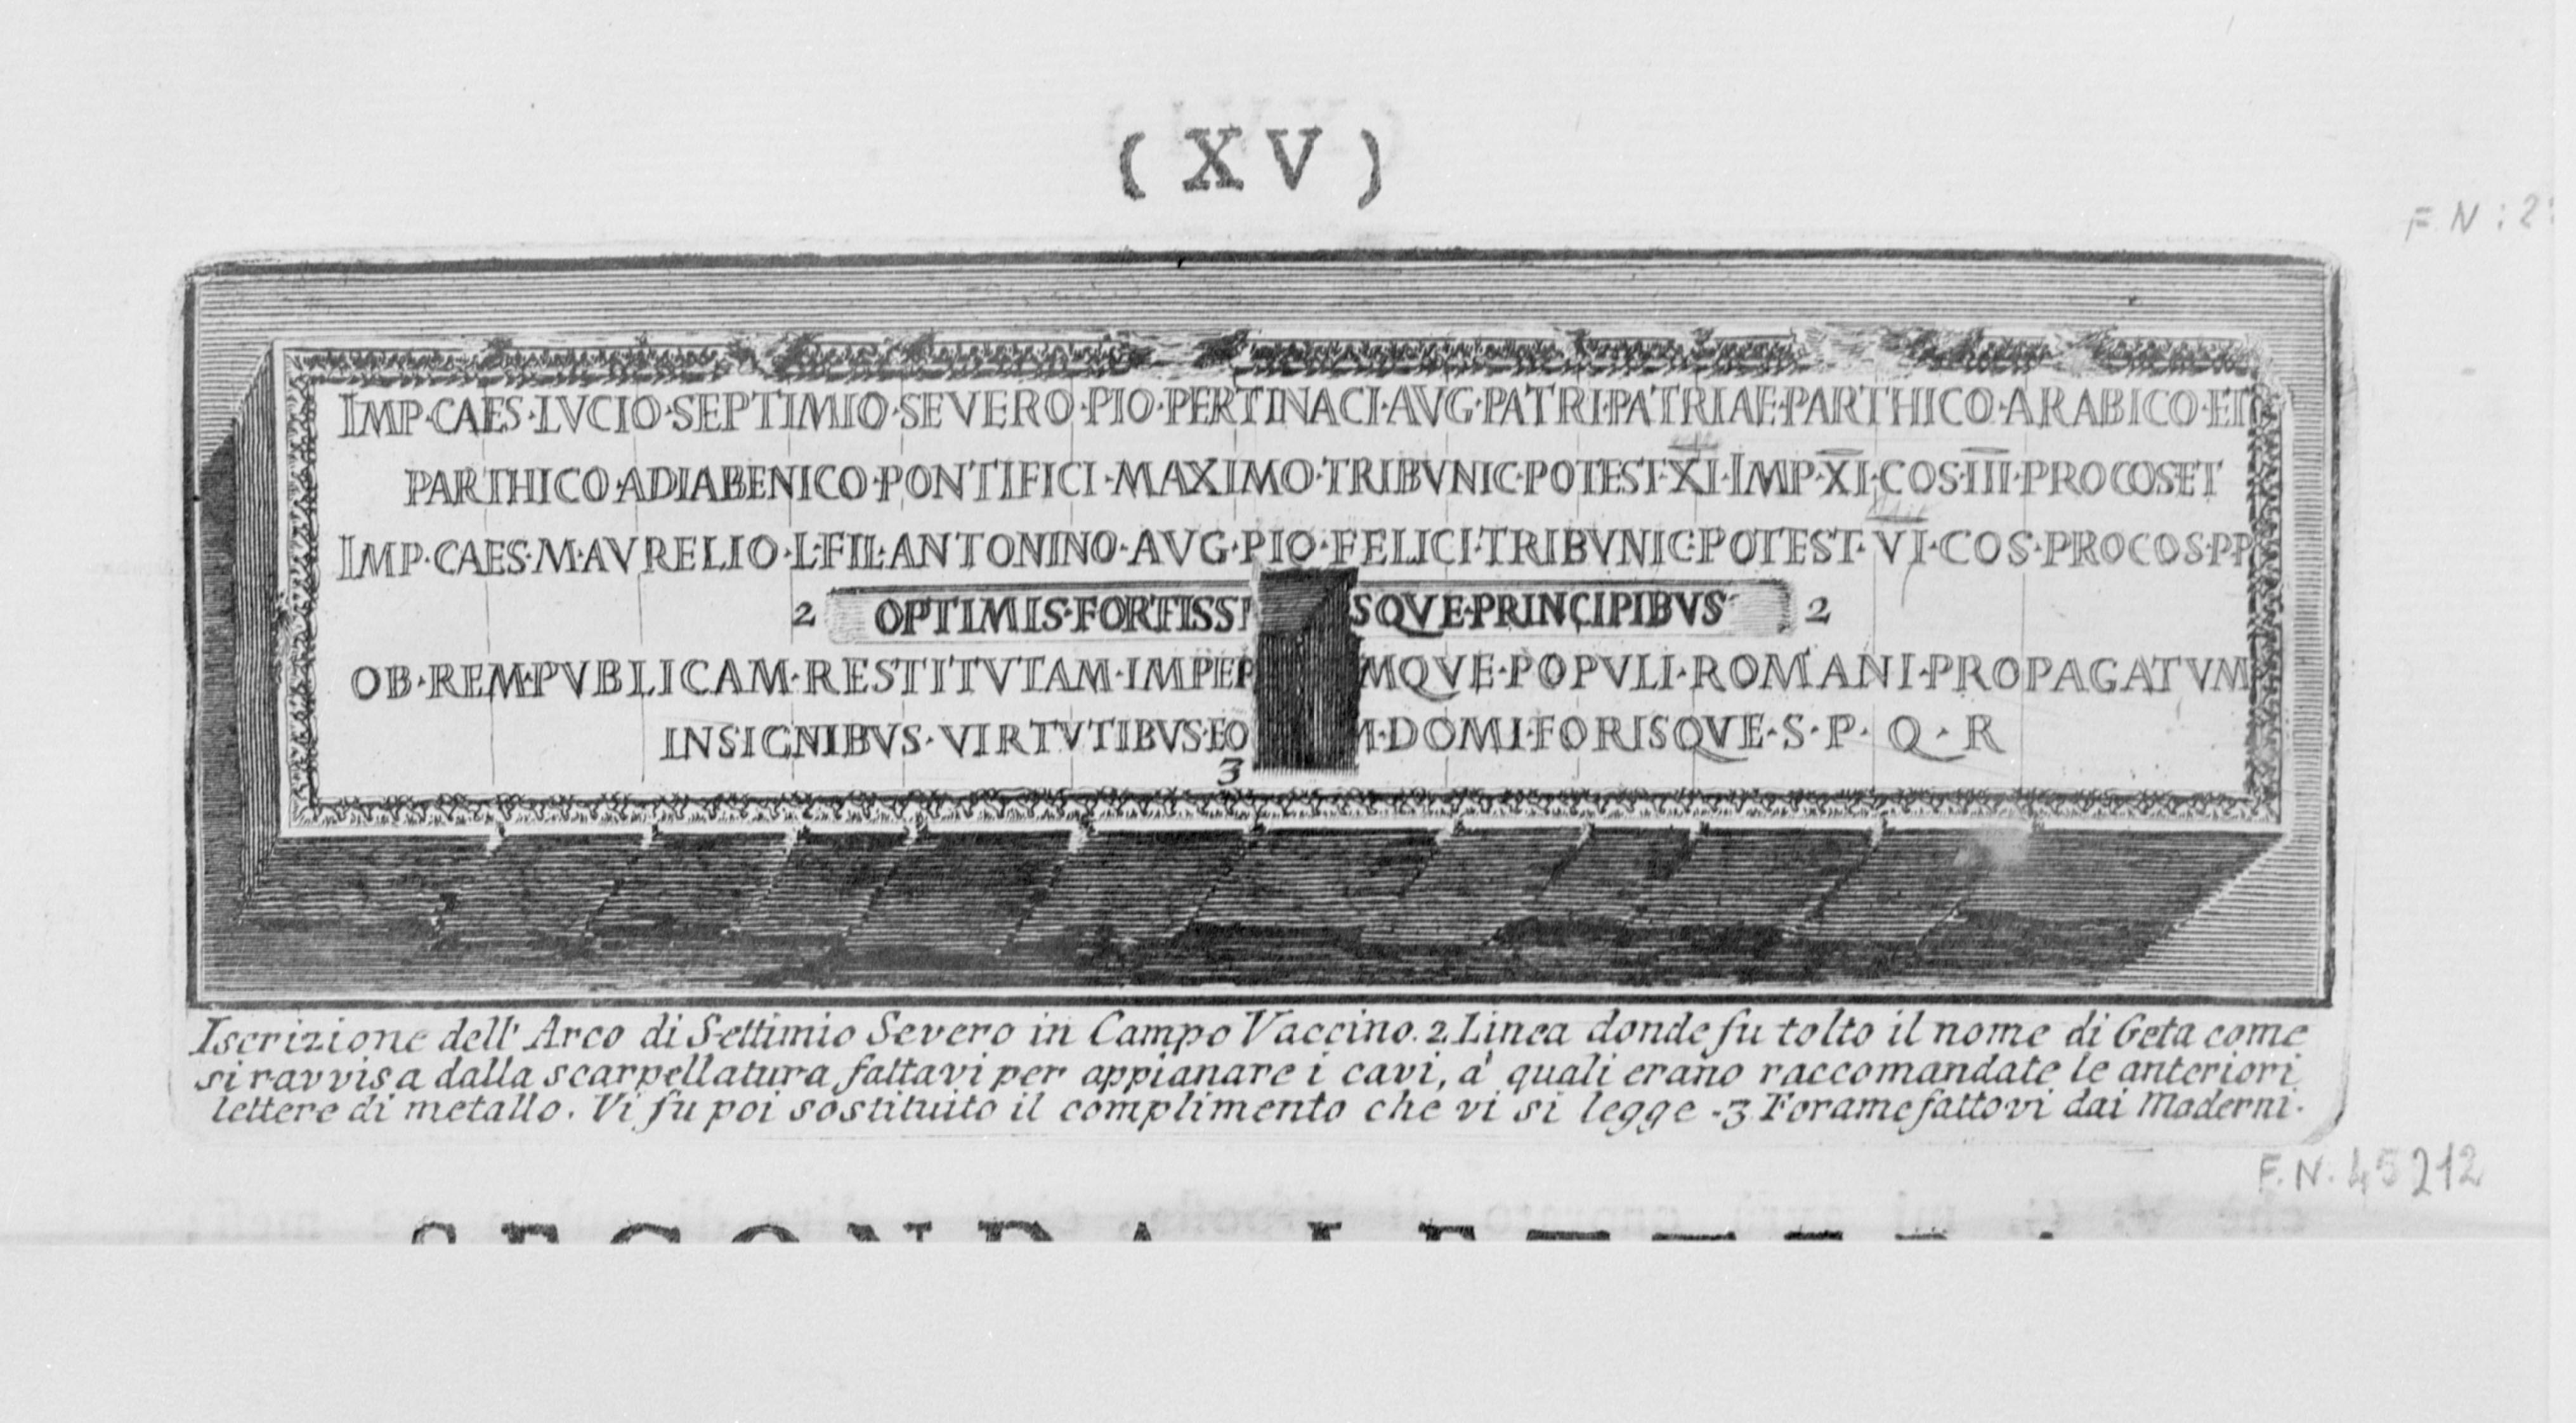 (XV)
F. N: 2
IMP·CAES·LVCIO·SEPTIMIO·SEVERO·PIO·PERTINACI·AVG·PATRI·PATRIAE·PARTHICO·ARABICO·ET
PARTHICO·ADIABENICO·PONTIFICI·MAXIMO·TRIBVNIC·POTEST·XI·IMP·XI·COS·III·PROCOSET
IMP·CAES·M·AVRELIO·L·FIL·ANTONINO·AVG·PIO·FELICI·TRIBVNIC·POTEST·VI·COS·PROCOS·PP
2 OPTIMIS·FORTISSI SQVE·PRINCIPIBVS 2
OB·REM·PVBLICAM·RESTITVTAM·IMPER MQVE·POPVLI·ROMANI·PROPAGATVM
INSIGNIBVS·VIRTVTIBVS·EO M·DOMI·FORISQVE·S·P·Q·R
3
Iscrizione dell' Arco di Settimio Severo in Campo Vaccino. 2. Linea donde fu tolto il nome di Geta come
si ravvisa dalla scarpellatura fattavi per appianare i cavi, a' quali erano raccomandate le anteriori
lettere di metallo. Vi fu poi sostituito il complimento che vi si legge -3 Forame fattovi dai Moderni.
F. N. 45212